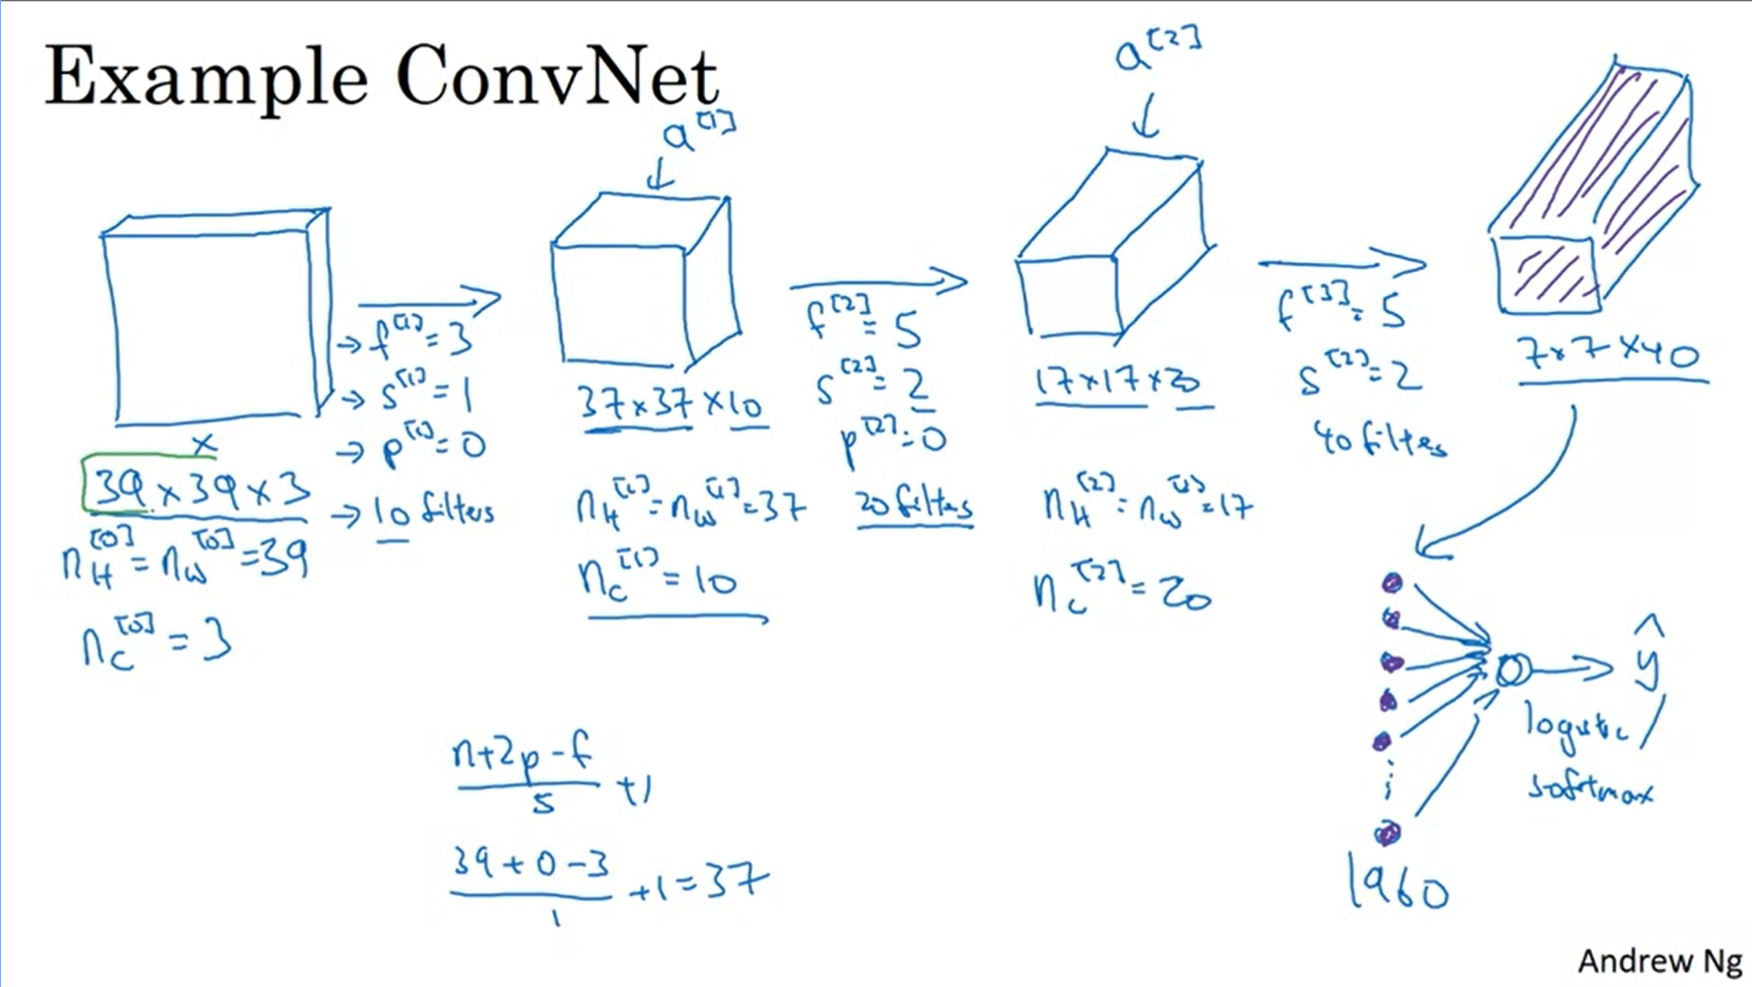 Example ConvNet
a^[1]
a^[2]
x
39 × 39 × 3
n_H^[0] = n_W^[0] = 39
n_C^[0] = 3
→ f^[1] = 3
→ s^[1] = 1
→ p^[1] = 0
→ 10 filters
37 × 37 × 10
n_H^[1] = n_W^[1] = 37
n_C^[1] = 10
f^[2] = 5
s^[2] = 2
p^[2] = 0
20 filters
17 × 17 × 20
n_H^[2] = n_W^[2] = 17
n_C^[2] = 20
f^[3] = 5
s^[2] = 2
40 filters
7 × 7 × 40
ŷ
logistic /
softmax
1960
n+2p-f
s
+1
39 + 0 - 3
1
+1 = 37
Andrew Ng